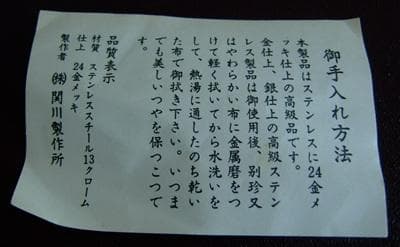 御手入れ方法
本製品はステンレスに24金メ
ッキ仕上の高級品です。
金仕上、銀仕上の高級ステン
レス製品は御使用後、別珍又
はやわらかい布に金属磨をつ
けて軽く拭いてから水洗いを
して、熱湯に通したのち乾い
た布で御拭き下さい。いつま
でも美しいつやを保つこつで
す。
品質表示
材質 ステンレススチール13クローム
仕上 24金メッキ
製作者 ㈱関川製作所